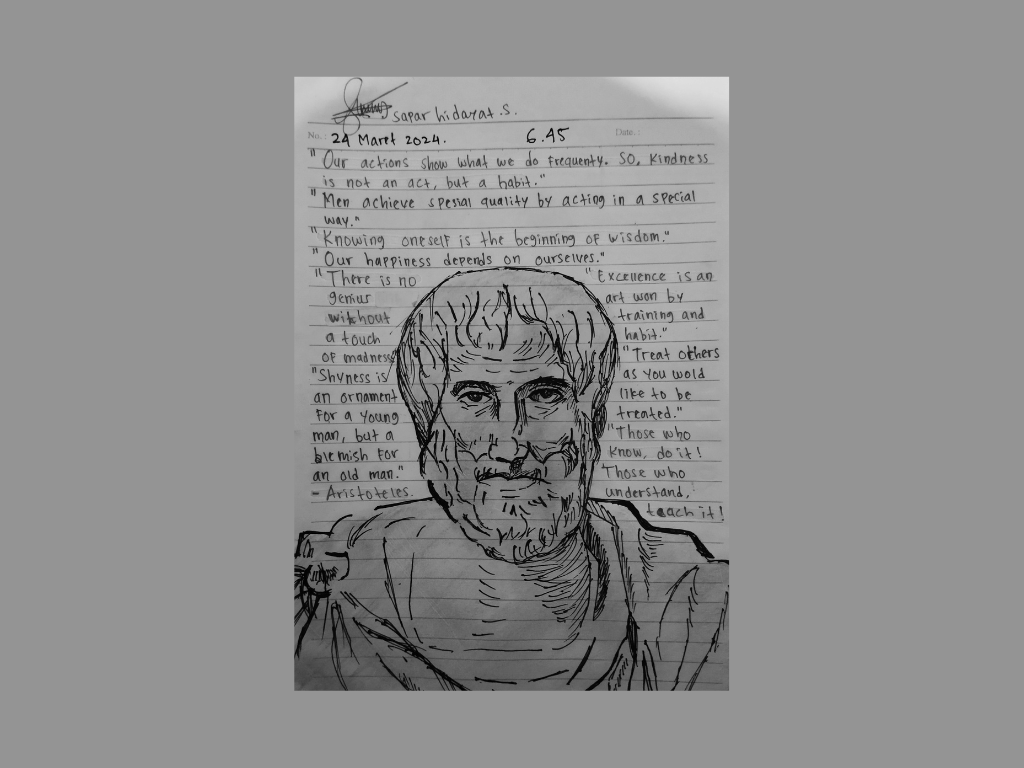 sapar hidayat .S.
No. : 24 Maret 2024. 6.45 Date. :
"Our actions show what we do frequenty. SO, Kindness
is not an act, but a habit."
"Men achieve spesial quality by acting in a special
way."
"Knowing oneself is the beginning of wisdom."
"Our happiness depends on ourselves."
"There is no
genius
without
a touch
of madness
"Shyness is
an ornament
For a young
man, but a
blemish For
an old man."
- Aristoteles.
"Excellence is an
art won by
training and
habit."
"Treat others
as you wold
like to be
treated."
"Those who
know, do it!
Those who
understand,
teach it!